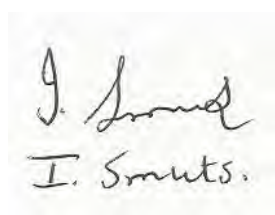 I. Smuts
I. Smuts.